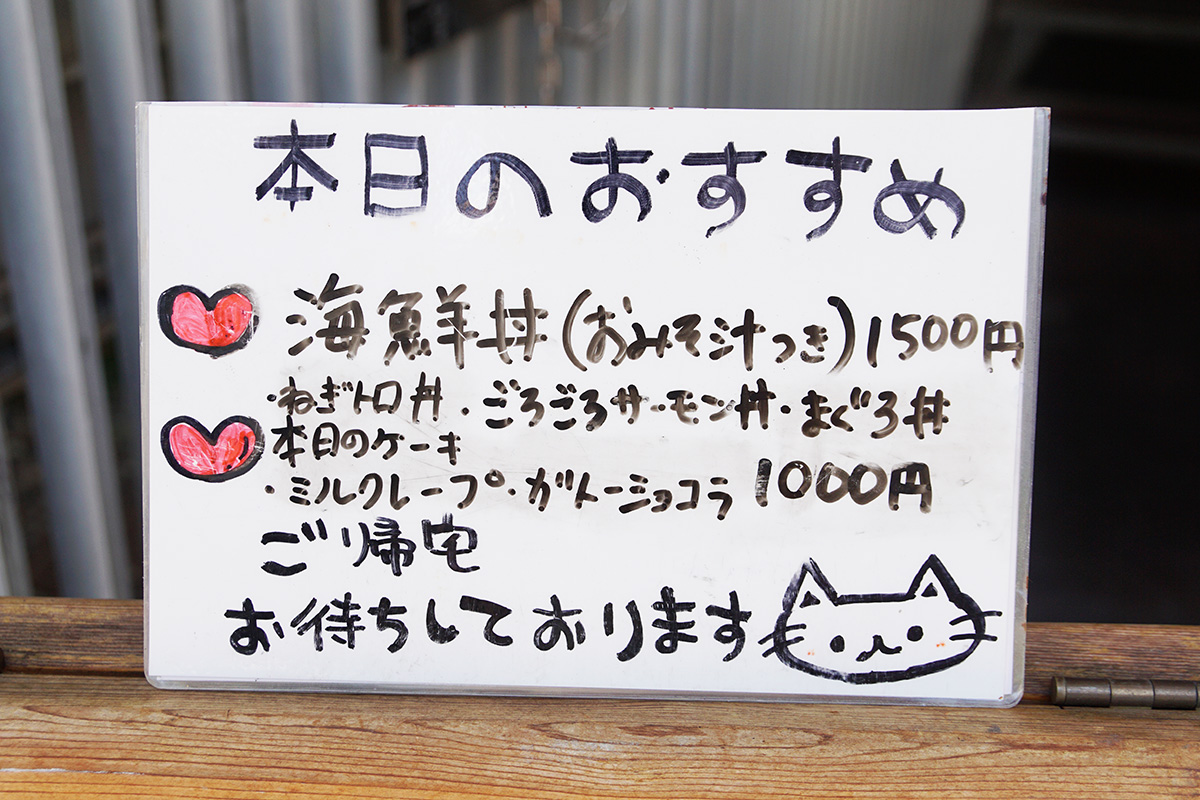 本日のおすすめ
海鮮丼(おみそ汁つき)1500円
・ねぎトロ丼・ごろごろサーモン丼・まぐろ丼
本日のケーキ
・ミルクレープ・ガトーショコラ 1000円
ごり帰宅
お待ちしております